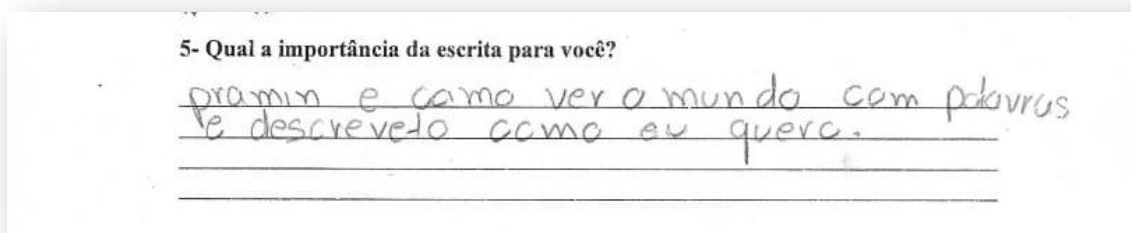 5- Qual a importância da escrita para você?
pramin e como ver o mundo com palavras
e descrevelo como eu quero.